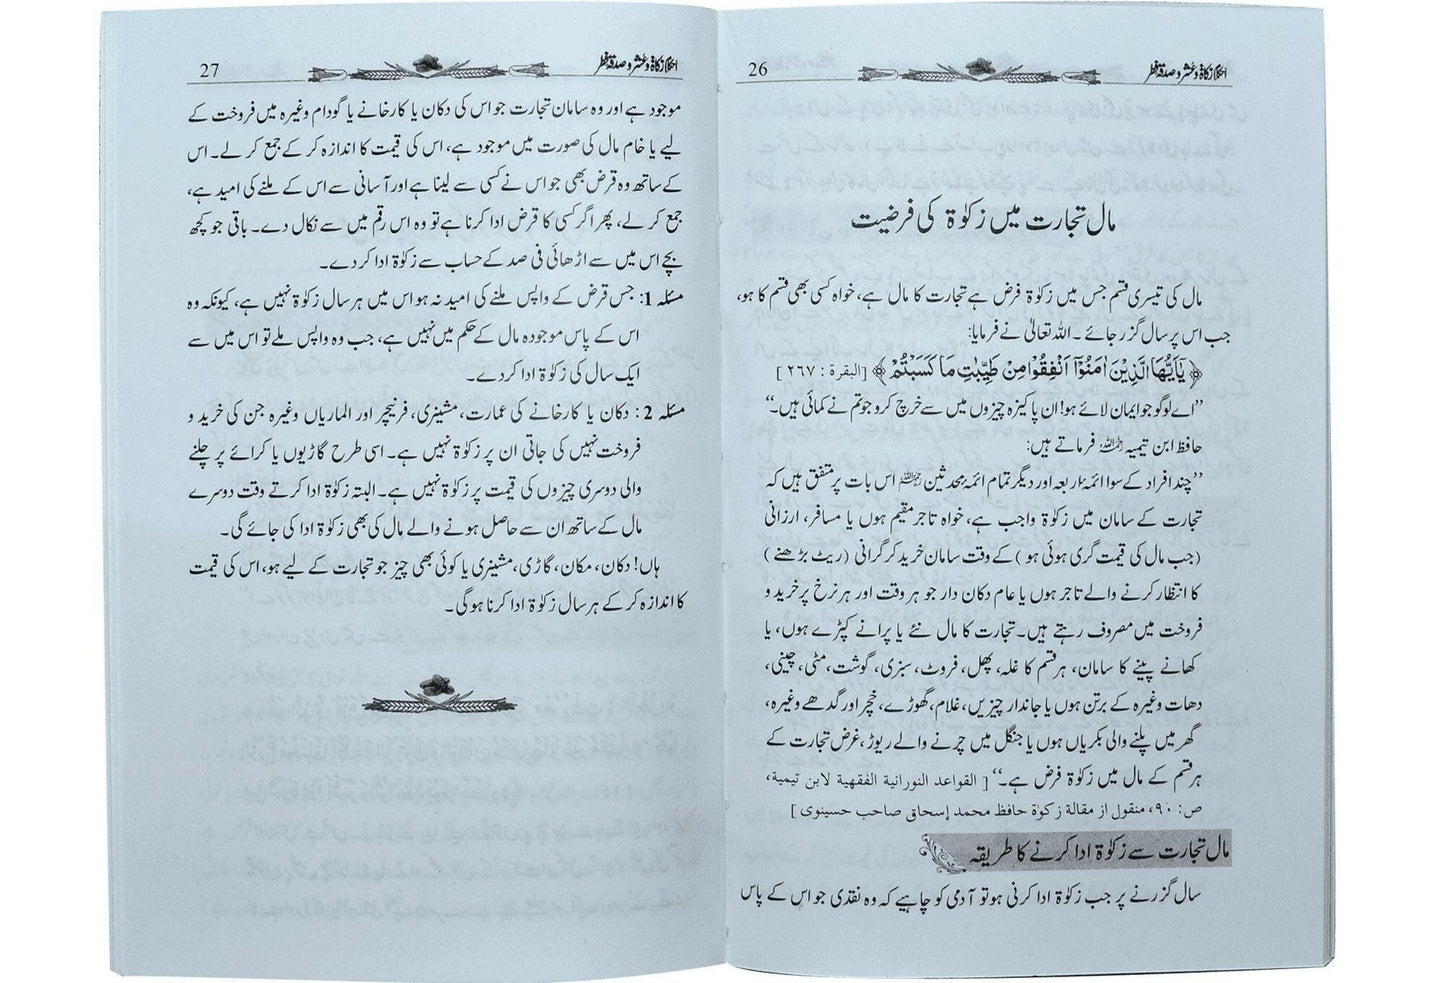 احکام زکاۃ و عشر و صدقۂ فطر
26
مال تجارت میں زکوٰۃ کی فرضیت
مال کی تیسری قسم جس میں زکوٰۃ فرض ہے تجارت کا مال ہے، خواہ کسی بھی قسم کا ہو،
جب اس پر سال گزر جائے۔ اللہ تعالیٰ نے فرمایا:
﴿ یٰۤاَیُّهَا الَّذِیْنَ اٰمَنُوْۤا اَنْفِقُوْا مِنْ طَیِّبٰتِ مَا كَسَبْتُمْ ﴾ [البقرة : ٢٦٧ ]
’’اے لوگو جو ایمان لائے ہو! ان پاکیزہ چیزوں میں سے خرچ کرو جو تم نے کمائی ہیں۔‘‘
حافظ ابن تیمیہ رحمہ اللہ فرماتے ہیں:
’’چند افراد کے سوا ائمۂ اربعہ اور دیگر تمام ائمۂ محدثین رحمہم اللہ اس بات پر متفق ہیں کہ
تجارت کے سامان میں زکوٰۃ واجب ہے، خواہ تاجر مقیم ہوں یا مسافر، ارزانی
(جب مال کی قیمت گری ہوئی ہو) کے وقت سامان خرید کر گرانی (ریٹ بڑھنے)
کا انتظار کرنے والے تاجر ہوں یا عام دکان دار جو ہر وقت اور ہر نرخ پر خرید و
فروخت میں مصروف رہتے ہیں۔ تجارت کا مال نئے یا پرانے کپڑے ہوں، یا
کھانے پینے کا سامان، ہر قسم کا غلہ، پھل، فروٹ، سبزی، گوشت، مٹی، چینی،
دھات وغیرہ کے برتن ہوں یا جاندار چیزیں، غلام، گھوڑے، خچر اور گدھے وغیرہ،
گھر میں پلنے والی بکریاں ہوں یا جنگل میں چرنے والے ریوڑ، غرض تجارت کے
ہر قسم کے مال میں زکوٰۃ فرض ہے۔‘‘ [ القواعد النورانية الفقهية لابن تيمية،
ص: ٩٠، منقول از مقالة زكوة حافظ محمد إسحاق صاحب حسينوى ]
مال تجارت سے زکوٰۃ ادا کرنے کا طریقہ
سال گزرنے پر جب زکوٰۃ ادا کرنی ہو تو آدمی کو چاہیے کہ وہ نقدی جو اس کے پاس
احکام زکاۃ و عشر و صدقۂ فطر
27
موجود ہے اور وہ سامان تجارت جو اس کی دکان یا کارخانے یا گودام وغیرہ میں فروخت کے
لیے یا خام مال کی صورت میں موجود ہے، اس کی قیمت کا اندازہ کر کے جمع کر لے۔ اس
کے ساتھ وہ قرض بھی جو اس نے کسی سے لینا ہے اور آسانی سے اس کے ملنے کی امید ہے،
جمع کر لے، پھر اگر کسی کا قرض ادا کرنا ہے تو وہ اس رقم میں سے نکال دے۔ باقی جو کچھ
بچے اس میں سے اڑھائی فی صد کے حساب سے زکوٰۃ ادا کر دے۔
مسئلہ 1: جس قرض کے واپس ملنے کی امید نہ ہو اس میں ہر سال زکوٰۃ نہیں ہے، کیونکہ وہ
اس کے پاس موجودہ مال کے حکم میں نہیں ہے، جب وہ واپس ملے تو اس میں سے
ایک سال کی زکوٰۃ ادا کر دے۔
مسئلہ 2 : دکان یا کارخانے کی عمارت، مشینری، فرنیچر اور الماریاں وغیرہ جن کی خرید و
فروخت نہیں کی جاتی ان پر زکوٰۃ نہیں ہے۔ اسی طرح گاڑیوں یا کرائے پر چلنے
والی دوسری چیزوں کی قیمت پر زکوٰۃ نہیں ہے۔ البتہ زکوٰۃ ادا کرتے وقت دوسرے
مال کے ساتھ ان سے حاصل ہونے والے مال کی بھی زکوٰۃ ادا کی جائے گی۔
ہاں! دکان، مکان، گاڑی، مشینری یا کوئی بھی چیز جو تجارت کے لیے ہو، اس کی قیمت
کا اندازہ کر کے ہر سال زکوٰۃ ادا کرنا ہو گی۔